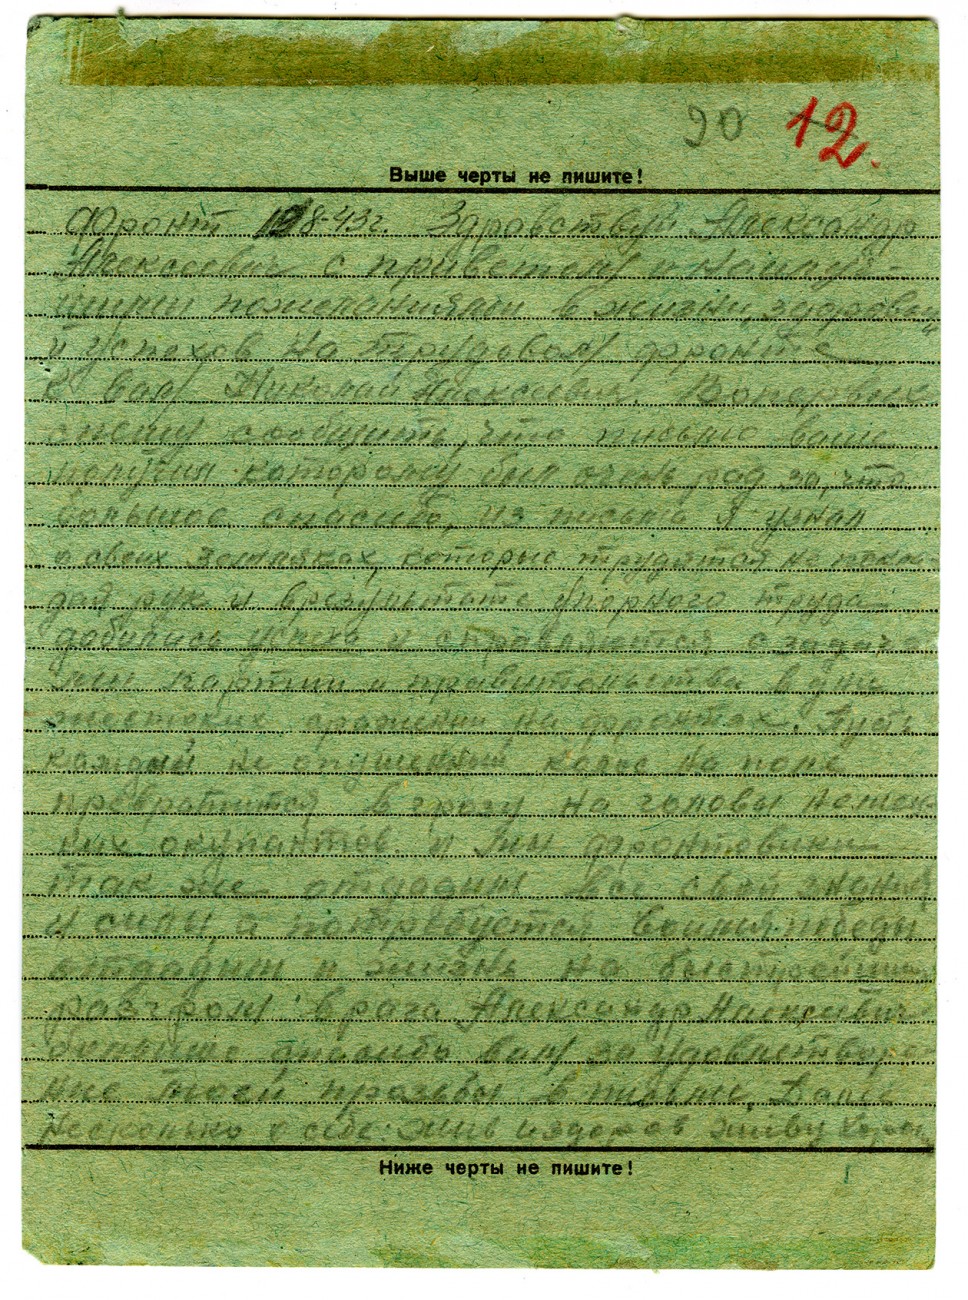 90 12.
Выше черты не пишите!
Фронт 8-43г. Здравствуй Александр
Алексеевич с приветом и наилуч-
шими пожеланиями в жизни, здоровьи
и успехов на трудовом фронте
к вам Николай Алексеевич. Вопервых
сообщить, что письмо ваше
получил которому был очень рад за, что
большое спасибо, из письма я узнал
о своих земляках, которые трудятся не покла-
дая рук и врезультате упорного труда
добились успеха и справляются с задача-
ми партии и правительства в дни
жестоких сражений на фронтах. Пусть
каждый не опущенный колос на поле
превратится в грозу на головы немец-
ких окупантов. и мы фронтовики
так же отдадим все свои знания
и силы, а потребуется воимя победы
отдадим и жизнь на быстрейший
разгром врага Александр Алексеевич
спасибо вам за удовлетворе-
ние моей прозьбы в письме. Далее
несколько о себе: жив издоров живу хорош
Ниже черты не пишите!